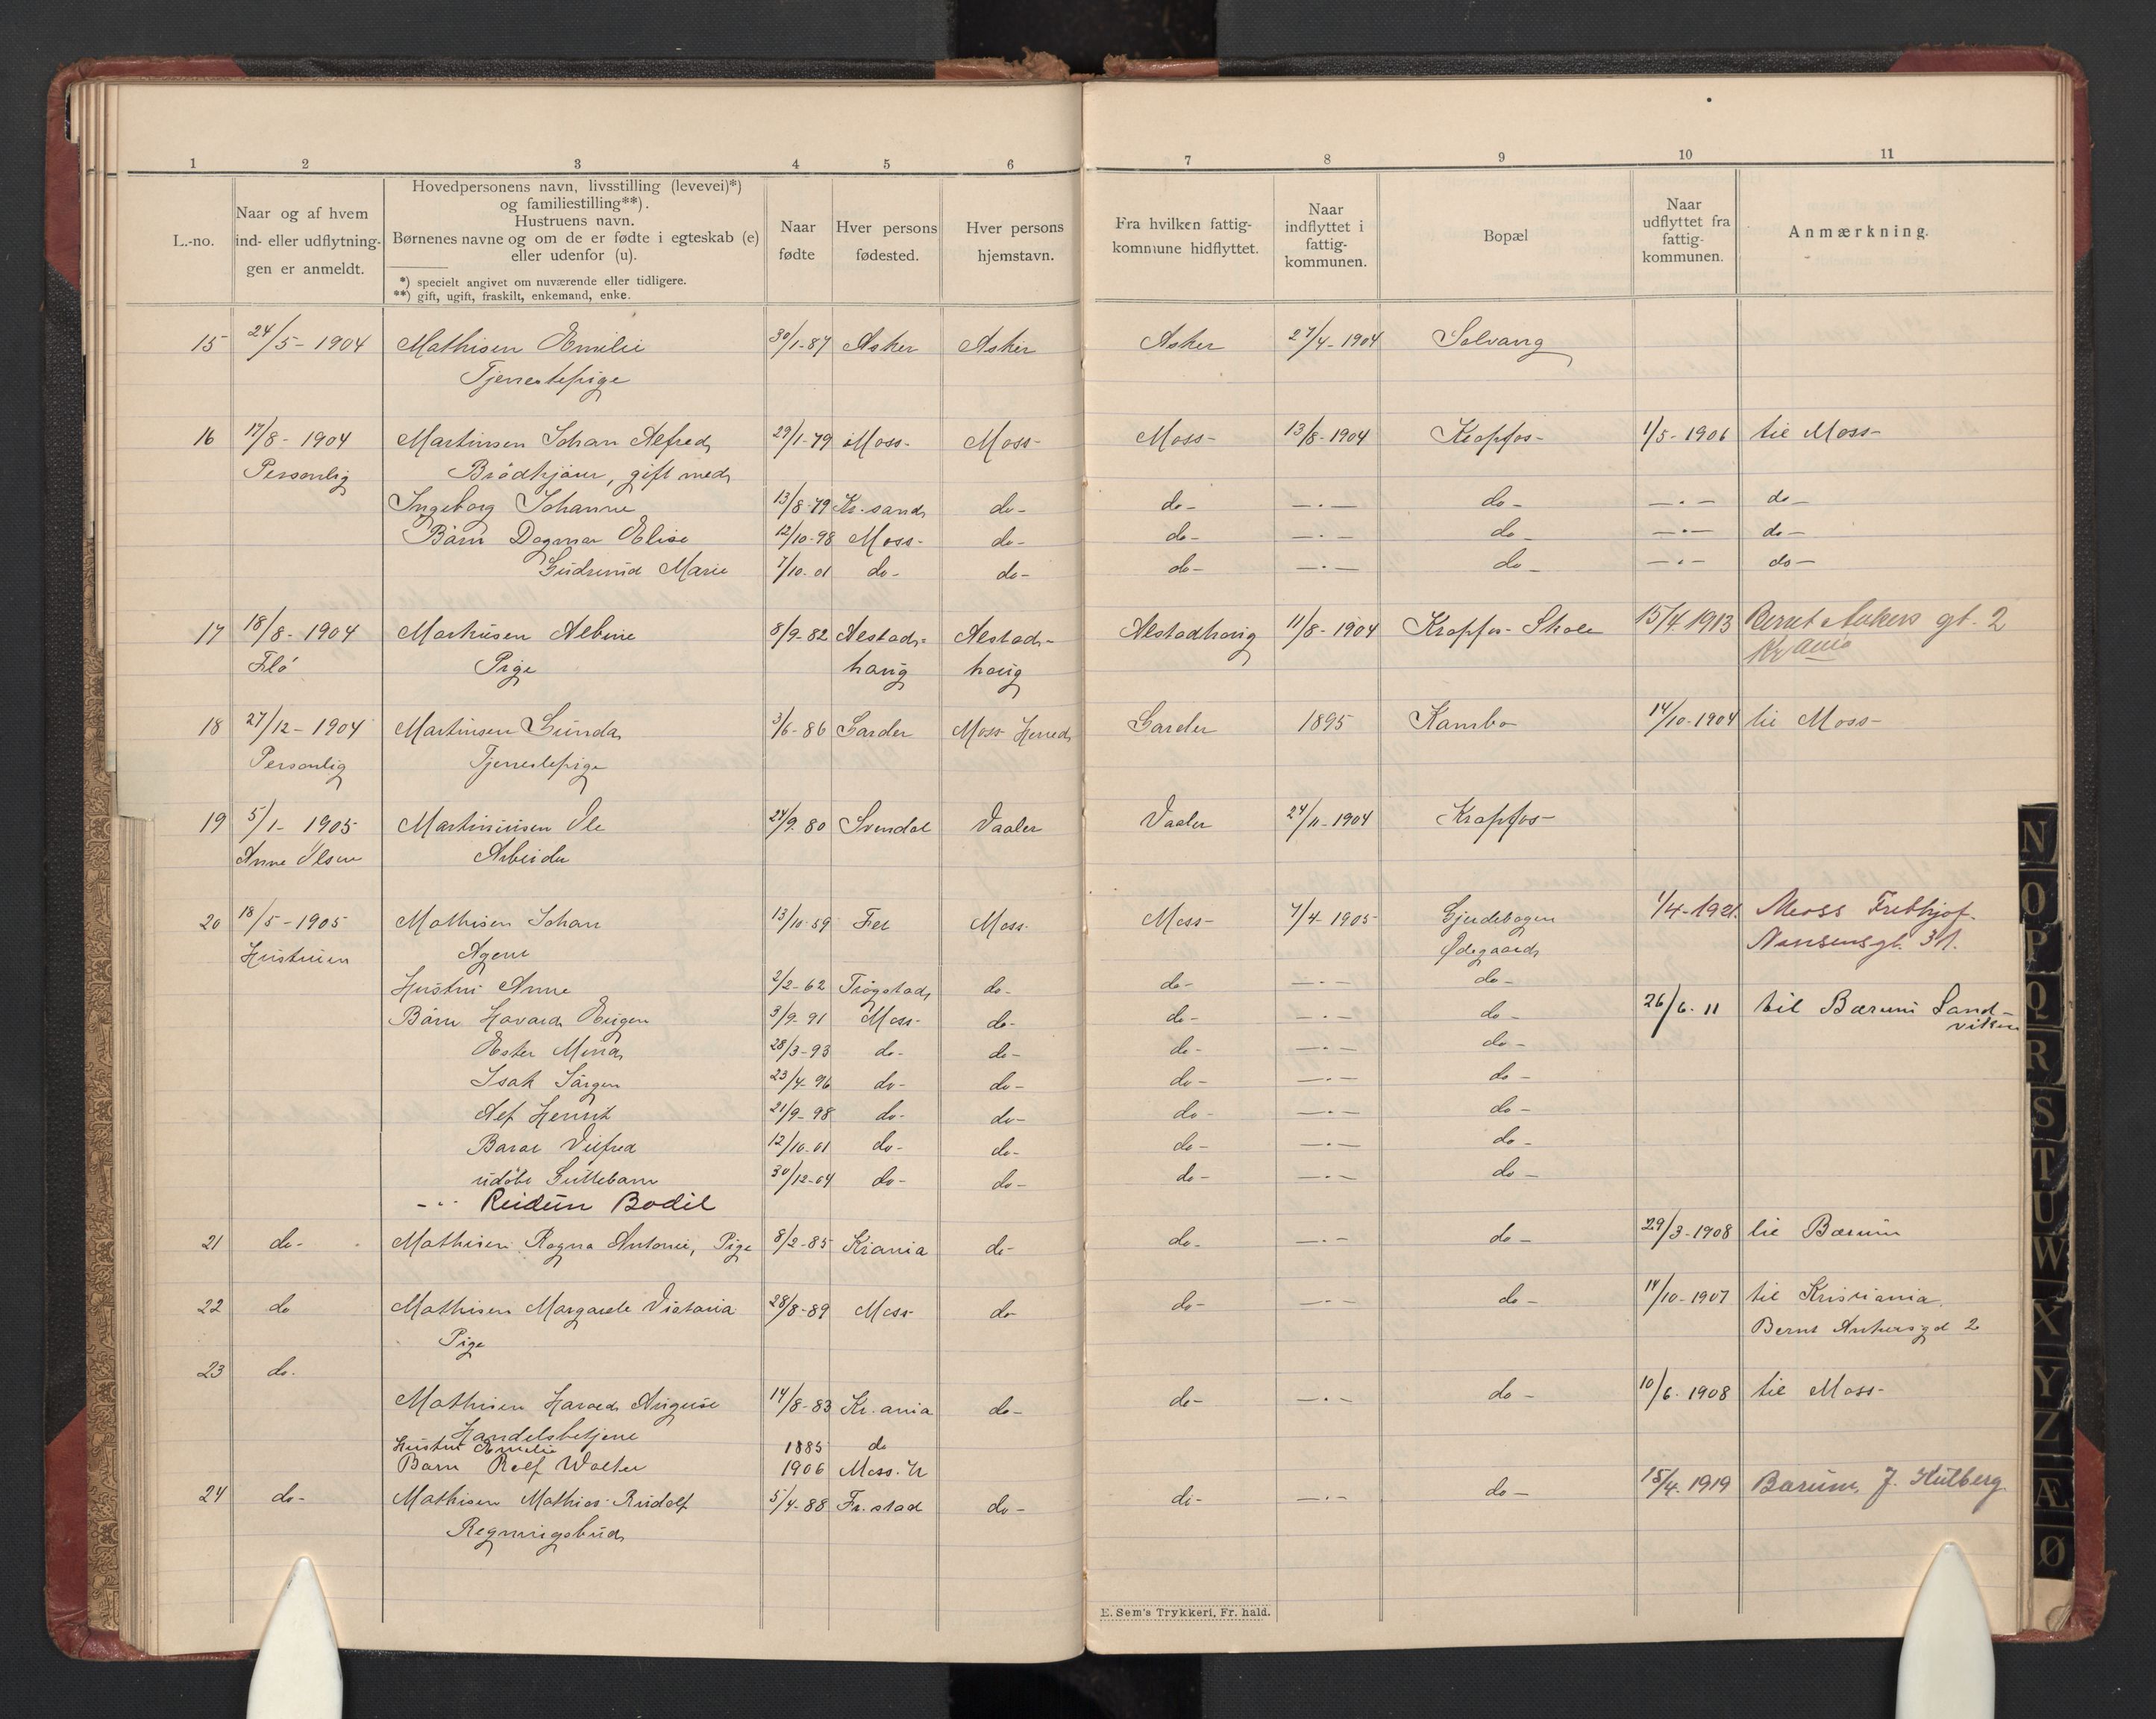 1 2 3 4 5 6 7 8 9 10 11
L.-no.
Naar og af hvem
ind- eller udflytnin-
gen er anmeldt.
Hovedpersonens navn, livsstilling (levevei)*)
og familiestilling**).
Hustruens navn.
Børnenes navne og om de er fødte i egteskab (e)
eller udenfor (u).
*) specielt angivet om nuværende eller tidligere.
**) gift, ugift, fraskilt, enkemand, enke.
Naar
fødte
Hver persons
fødested.
Hver persons
hjemstavn.
Fra hvilken fattig-
kommune hidflyttet.
Naar
indflyttet i
fattig-
kommunen.
Bopæl
Naar
udflyttet fra
fattig-
kommunen.
Anmærkning.
15 24/5 - 1904 Mathisen Emilie 30/1-87 Asker Asker Asker 27/4-1904 Solvang
Tjenestepige
16 17/8 - 1904 Martinsen Johan Alfred 29/1-79 Moss- Moss- Moss- 13/8-1904 Kropfos- 1/5-1906 til Moss-
Personlig Brödkjörer, gift med
Ingeborg Johanne 13/8-79 Kr.sand do- do- —·— do- —·— do-
Börn Dagmar Elise 12/10-98 Moss- do- do- —·— do- —·— do-
Gudrund Marie 7/10-01 do- do- do- —·— do- —·— do-
17 18/8 - 1904 Martinsen Albine 8/9-82 Alstad- Alstad- Alstadhaug 11/8-1904 Kropfos Skole 15/4 1913 Bernt Ankers gt. 2
Flö Pige haug haug Krania
18 27/12 - 1904 Martinsen Gunda 3/6-86 Garder Moss Herred Garder 1895 Kambo 14/10-1904 til Moss-
Personlig Tjenestepige
19 5/1- 1905 Martiniusen Ole 24/9-80 Svendal Vaaler Vaaler 24/11-1904 Kropfos-
Anne Olsen Arbeider
20 18/5 - 1905 Mathisen Johan 13/10-59 Fet Moss- Moss- 7/4-1905 Gjerdebogen 1/4-1921. Moss Frithjof
Hustruen Agent Ødegaard Nansensgt. 31.
Hustru Anne 2/2-62 Trögstad do- do- —·— do-
Börn Havard Eugen 3/9-91 Moss- do- do- —·— do- 26/6-11 til Bærum Sand-
vikun
Ester Minda 28/3-93 do- do- do- —·— do-
Isak Jörgen 23/4-96 do- do- do- —·— do-
Alf Henrik 21/9-98 do- do- do- —·— do-
Vilfred 12/10-01 do- do- do- —·— do-
udöbt Guttebarn 30/12-04 do- do- do- —·— do-
-·· Reidun Bodil
21 do- Mathisen Ragna Antonie, Pige 8/2-85 Krania do- do- —·— do- 29/3-1908 til Bærum
22 do Mathisen Margarete Victoria 28/8-89 Moss do do- —·— do- 14/10-1907 til Kristiania.
Pige Bernt Ankersgd 2
23 do.
Mathisen Harald August 14/8-83 Kr.ania do- do- —·— do- 10/6-1908 til Moss-
Handelsbetjent
Hustru Emilie 1885 do
Barn Rolf Walter 1906 Moss. H
24 do- Mathisen Mathias Rudolf 5/4-88 Fr.stad do- do- —·— do- 15/4-1919 Bærum, J. Hulberg.
Regningsbud
E. Sem's Trykkeri, Fr. hald.
N
O
P
Q
R
S
T
U
W
X
Y
Z
Æ
Ø